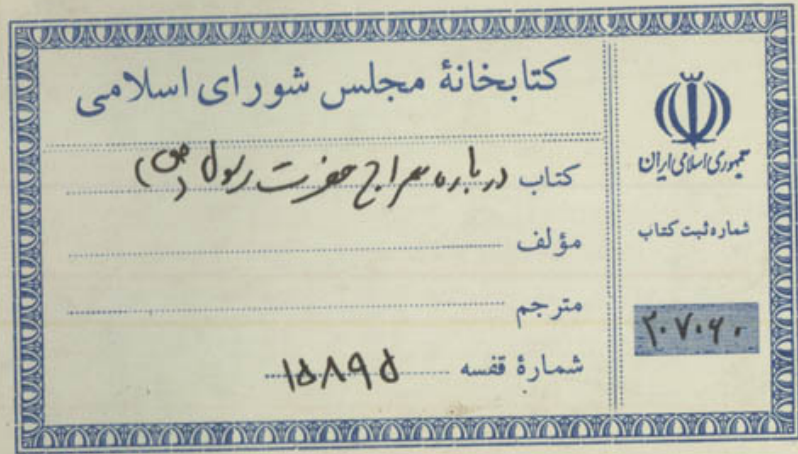 کتابخانهٔ مجلس شورای اسلامی
کتاب درباره معراج حضرت رسول (ص)
مؤلف
مترجم
شمارهٔ قفسه ۱۵۸۹۵
جمهوری اسلامی ایران
شماره ثبت کتاب
۲۰۷۰۶۰